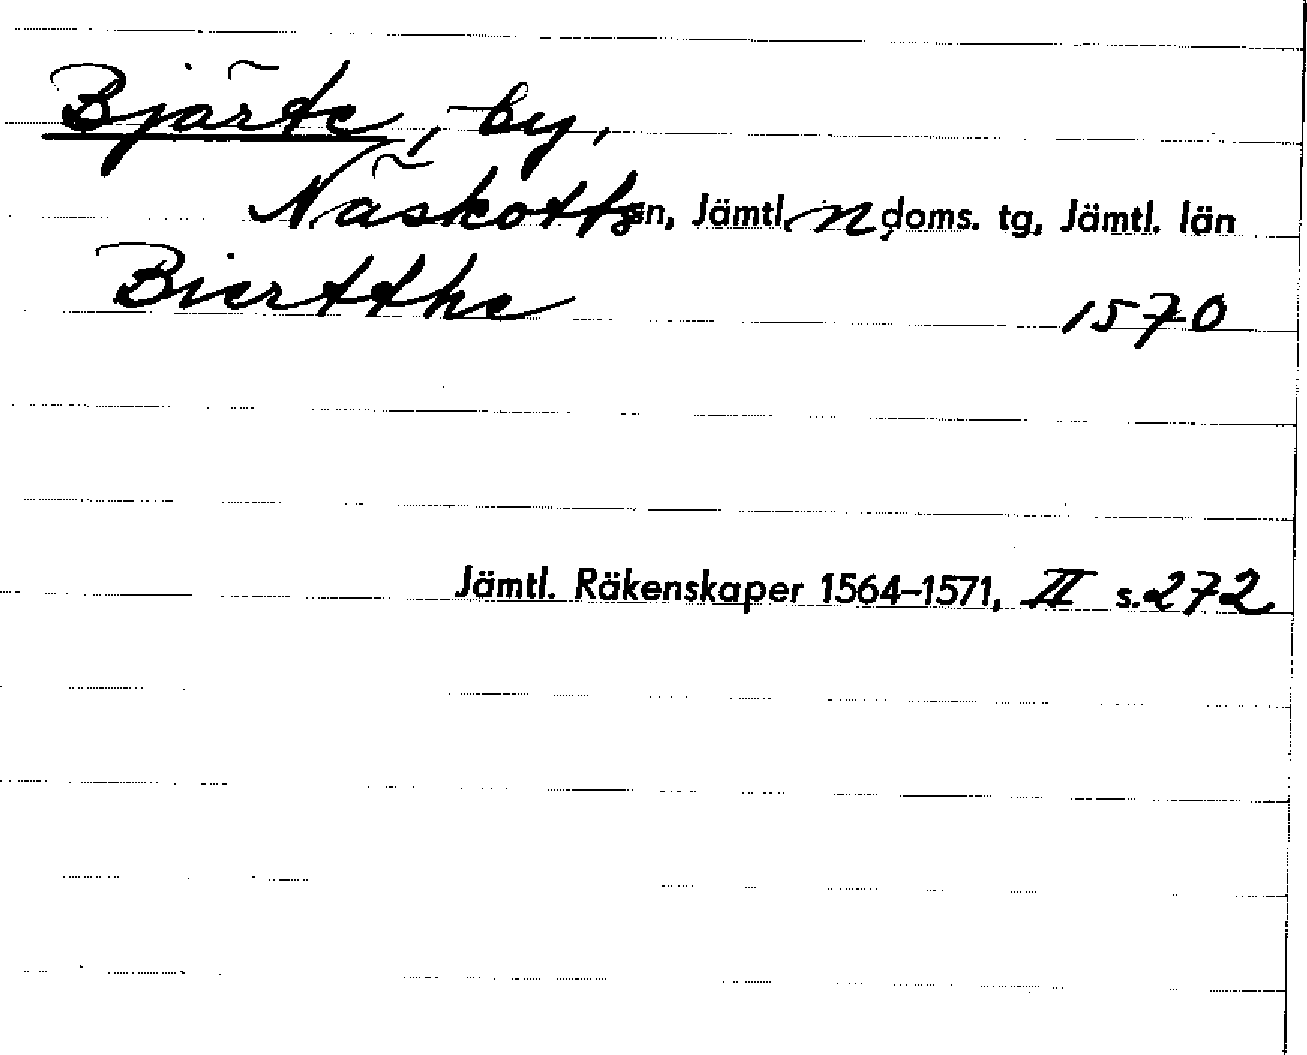 Bjärte, by,
Näskotts sn, Jämtl. n doms. tg, Jämtl. län
Biertthe 1570
Jämtl. Räkenskaper 1564–1571, II s. 272